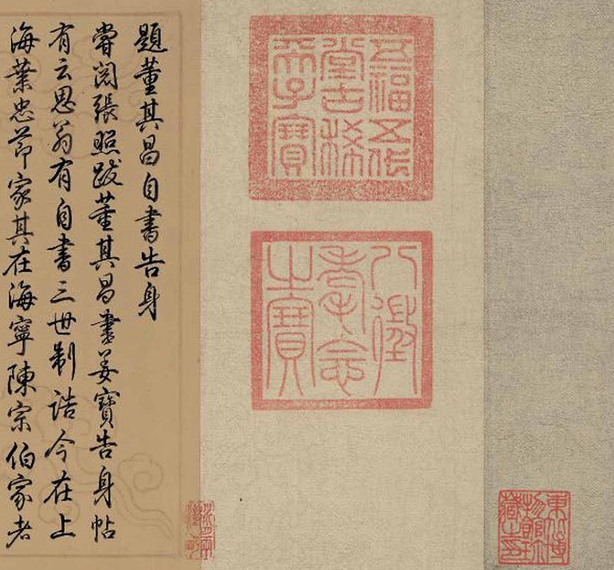 東北博
物館珍
藏之印
五福五代
堂古稀
天子寶
八徵
耄念
之寶
題董其昌自書告身
嘗閱張照跋董其昌書姜寶告身帖
有云思翁有自書三世制誥今在上
海葉忠節家其在海寧陳宗伯家者